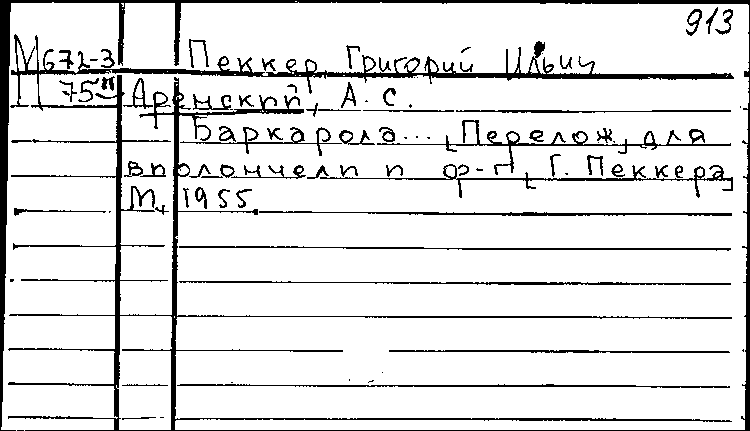 913
М 672-3 Пеккер, Григорий Ильич
75 Аренский, А. С.
Баркарола... [Перелож] для
виолончели и ф-п [Г. Пеккера]
М, 1955.